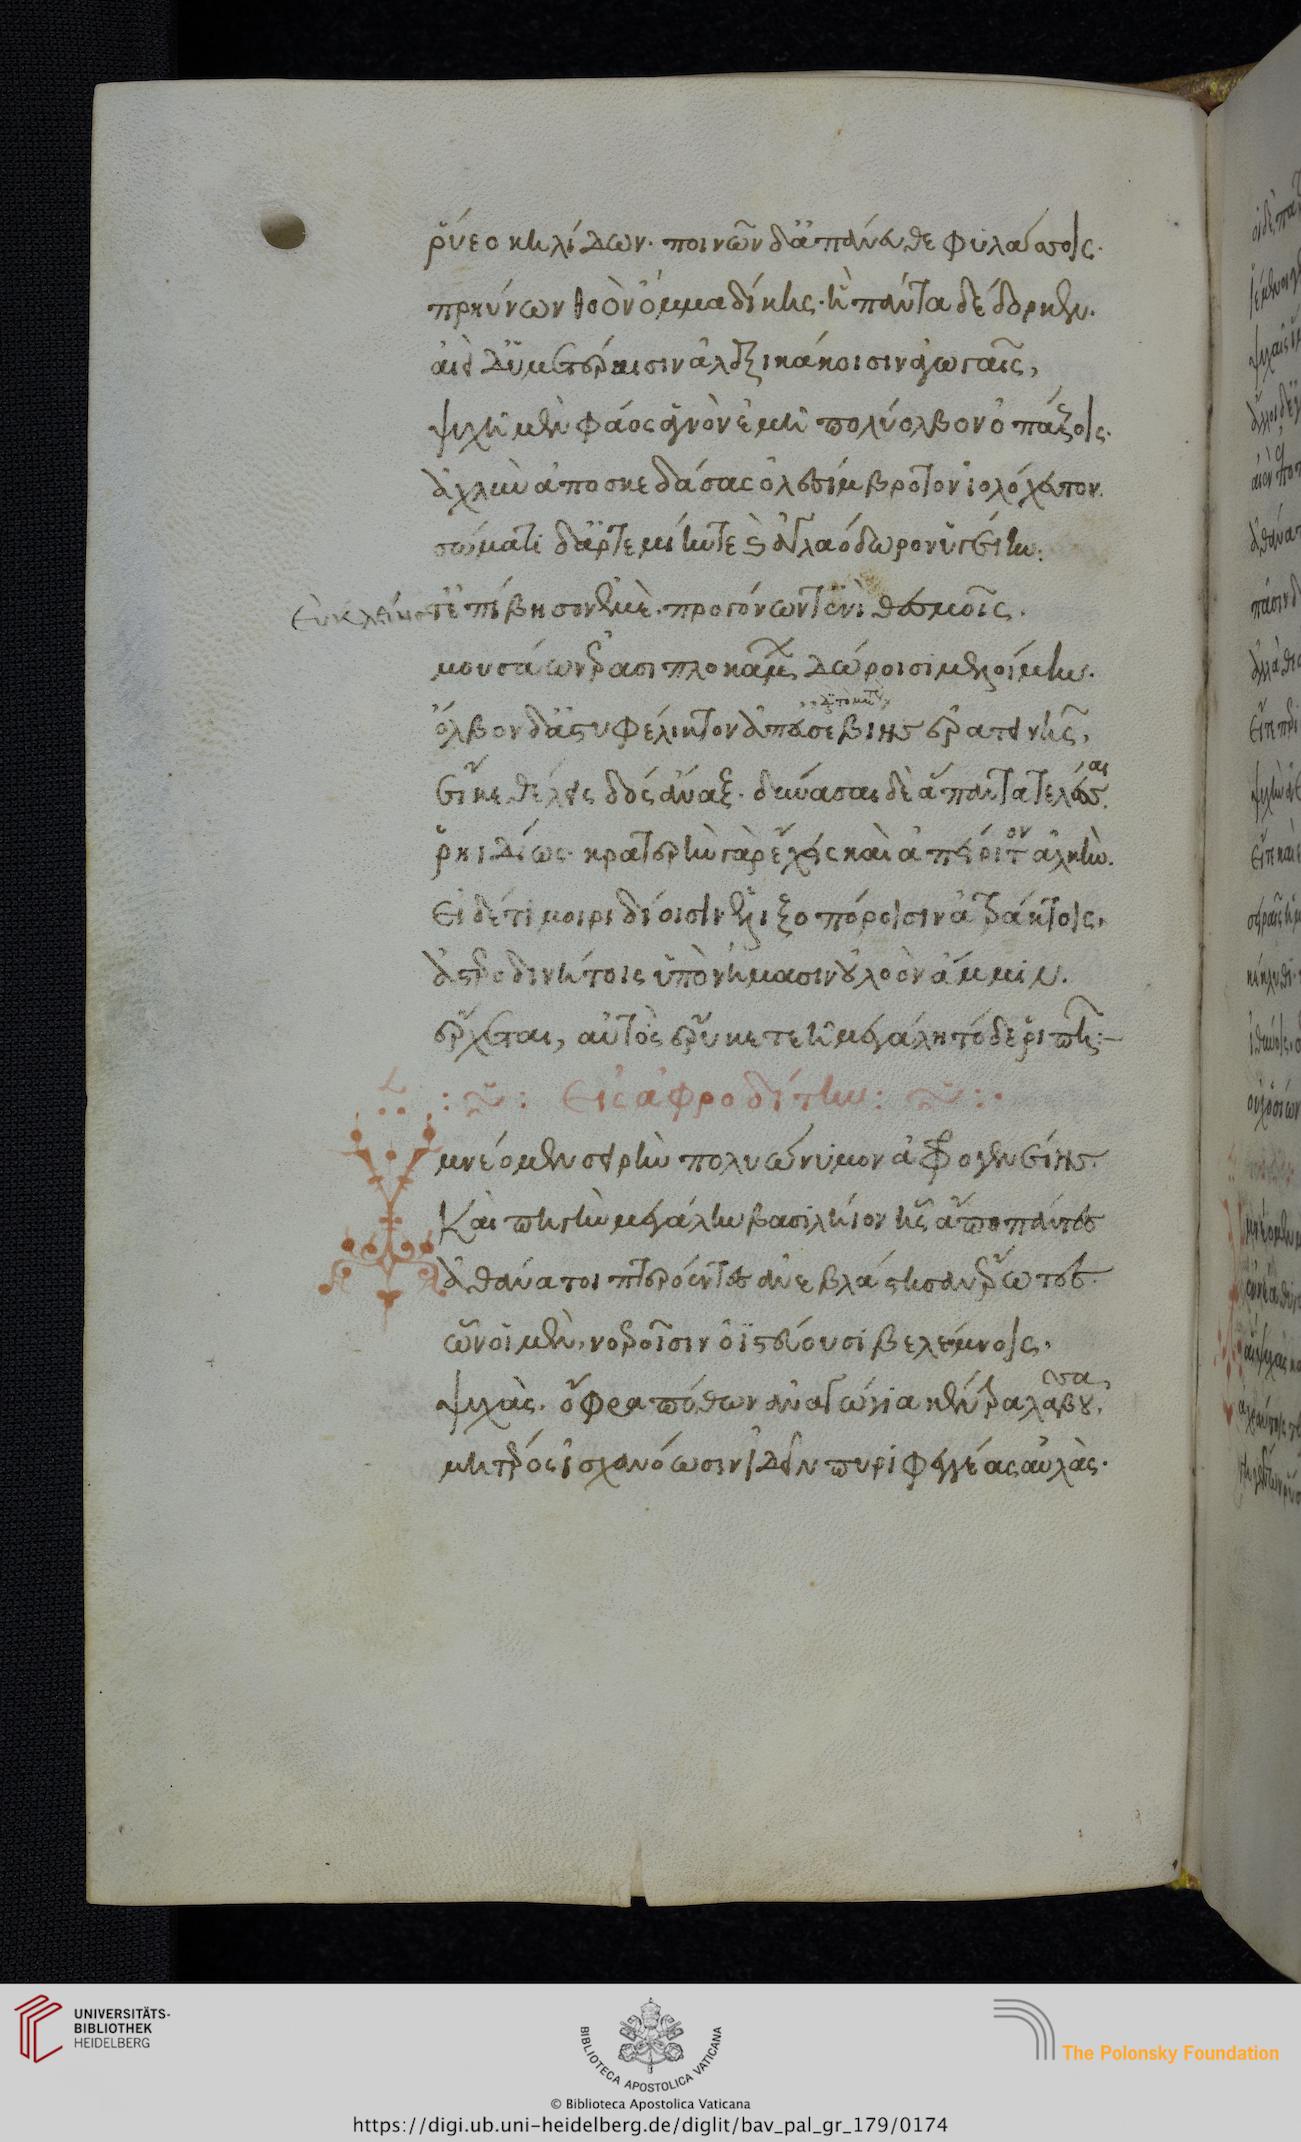 ῥύεο κηλίδων. ποινῶν δ' ἀπάνευθε φυλάσσοις.
πρηύνων θοὸν ὄμμα δίκης. ἣ πάντα δέδορκεν.
αἰεὶ δ' ὑμετέρῃσιν ἀλεξικάκοισιν ἀρωγαῖς,
ψυχῇ μὲν φάος ἁγνὸν ἐμῇ πολύολβον ὀπάζοις.
ἀχλὺν ἀποσκεδάσας ὀλεσίμβροτον ἰολόχευτον.
σώματι δ' ἀρτεμίην τε καὶ ἀγλαόδωρον ὑγείην.
Εὐκλείης τ' ἐπίβησον ἐμὲ. προγόνων τ' ἐνὶ θεσμοῖς.
μουσάων ἐρασιπλοκάμων δώροισι μελοίμην.
ὄλβον δ' ἀστυφέλικτον ἀπ' εὐσεβίης ἐρατεινῆς,
εἴ κε θέλεις δὸς ἄναξ. δύνασαι δὲ ἅπαντα τελέσσαι.
ῥηϊδίως. κρατερὴν γὰρ ἔχεις καὶ ἀπείριτον ἀλκήν.
Εἰ δέ τι μοιριδίοισιν ἑλιξοπόροισιν ἀτράκτοις,
ἀστροδινήτοις ὑπὸ νήμασιν οὐλοὸν ἄμμιν.
ἔρχεται, αὐτὸς ἔρυκε τεῇ μεγάλῃ τόδε ῥιπῇ:-
Εἰς ἀφροδίτην:
Ὑμνέομεν σειρὴν πολυώνυμον ἀφρογενείης.
Καὶ πηγὴν μεγάλην βασιλήϊον ἧς ἄπο πάντες
ἀθάνατοι πτερόεντες ἀνεβλάστησαν ἔρωτες.
ὧν οἱ μὲν, νοεροῖσιν ὀϊστεύουσι βελέμνοις.
ψυχὰς. ὄφρα πόθων ἀναγώγια κέντρα λαβοῦσαι,
μητρὸς ἰσχανόωσιν ἰδεῖν πυριφεγγέας αὐλὰς.
UNIVERSITÄTS-
BIBLIOTHEK
HEIDELBERG
BIBLIOTECA APOSTOLICA VATICANA
The Polonsky Foundation
© Biblioteca Apostolica Vaticana
https://digi.ub.uni-heidelberg.de/diglit/bav_pal_gr_179/0174